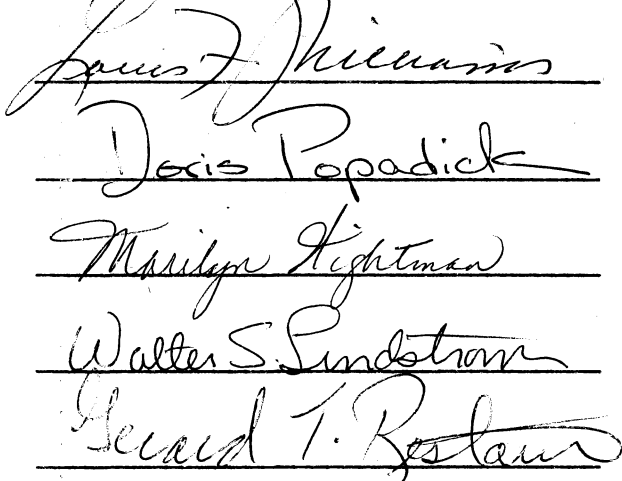 Louis F Williams
Doris Popadick
Marilyn Hightman
Walter S. Lindstrom
Gerard T.